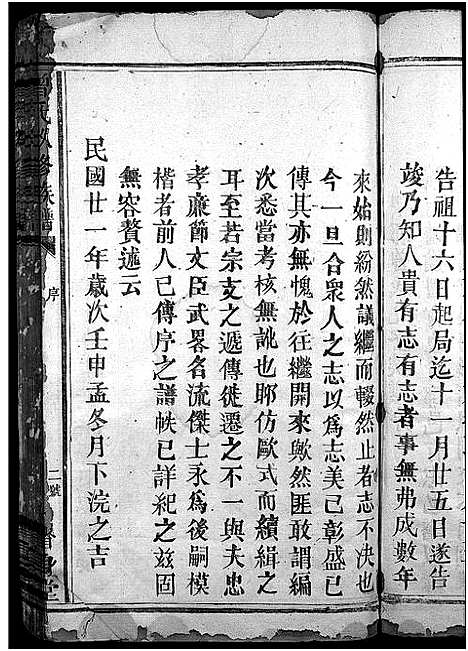 告祖十六日起局迄十一月廿五日遂告
竣乃知人貴有志有志者事無弗成數年
來始則紛然議繼而輟然止者志不决也
今一旦合衆人之志以爲志美已彰盛已
傳其亦無愧於往繼開來歟然匪敢謂編
次悉當考核無訛也郎仿歐式而續緝之
耳至若宗支之遞傳徙遷之不一與夫忠
孝亷節文臣武畧名流傑士永爲後嗣模
楷者前人已傳序之譜帙已詳紀之兹固
無容贅述云
民國廿一年歲次壬申孟冬月下浣之吉
氏
修族譜
序
二號